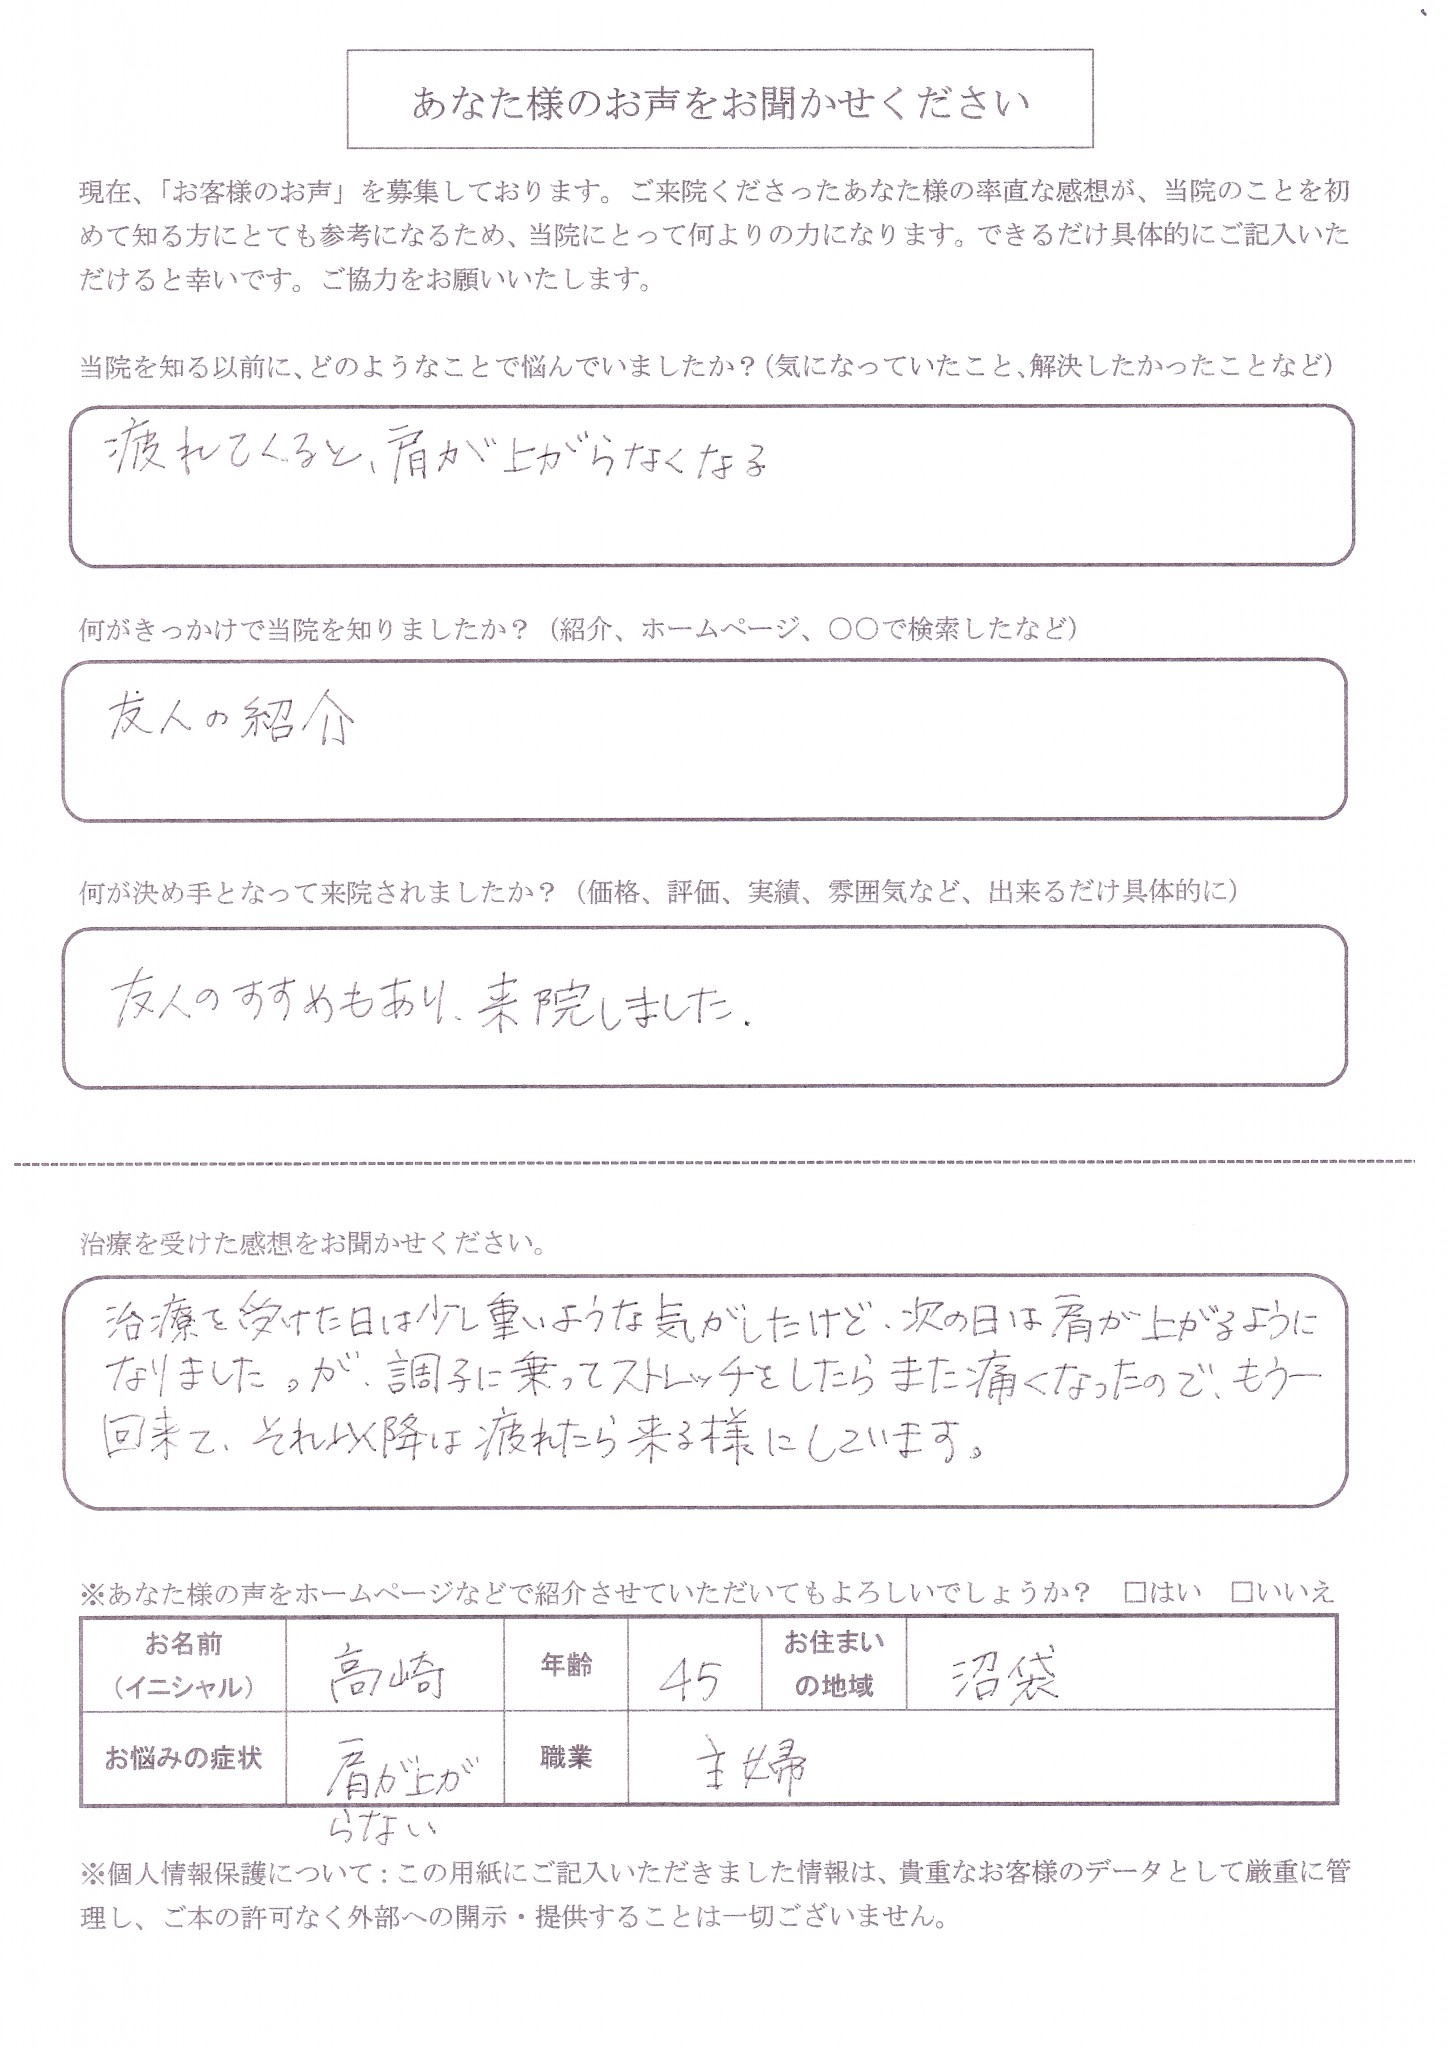 あなた様のお声をお聞かせください
現在、「お客様のお声」を募集しております。ご来院くださったあなた様の率直な感想が、当院のことを初
めて知る方にとても参考になるため、当院にとって何よりの力になります。できるだけ具体的にご記入いた
だけると幸いです。ご協力をお願いいたします。
当院を知る以前に、どのようなことで悩んでいましたか？（気になっていたこと、解決したかったことなど）
疲れてくると、肩が上がらなくなる
何がきっかけで当院を知りましたか？（紹介、ホームページ、〇〇で検索したなど）
友人の紹介
何が決め手となって来院されましたか？（価格、評価、実績、雰囲気など、出来るだけ具体的に）
友人のすすめもあり、来院しました.
治療を受けた感想をお聞かせください。
治療を受けた日は少し重いような気がしたけど、次の日は肩が上がるように
なりました。が、調子に乗ってストレッチをしたらまた痛くなったので、もう一
回来て、それ以降は疲れたら来る様にしています。
※あなた様の声をホームページなどで紹介させていただいてもよろしいでしょうか？　□はい　□いいえ
お名前（イニシャル） 高崎 年齢 45 お住まいの地域 沼袋
お悩みの症状 肩が上が 職業 主婦
らない
※個人情報保護について：この用紙にご記入いただきました情報は、貴重なお客様のデータとして厳重に管
理し、ご本の許可なく外部への開示・提供することは一切ございません。